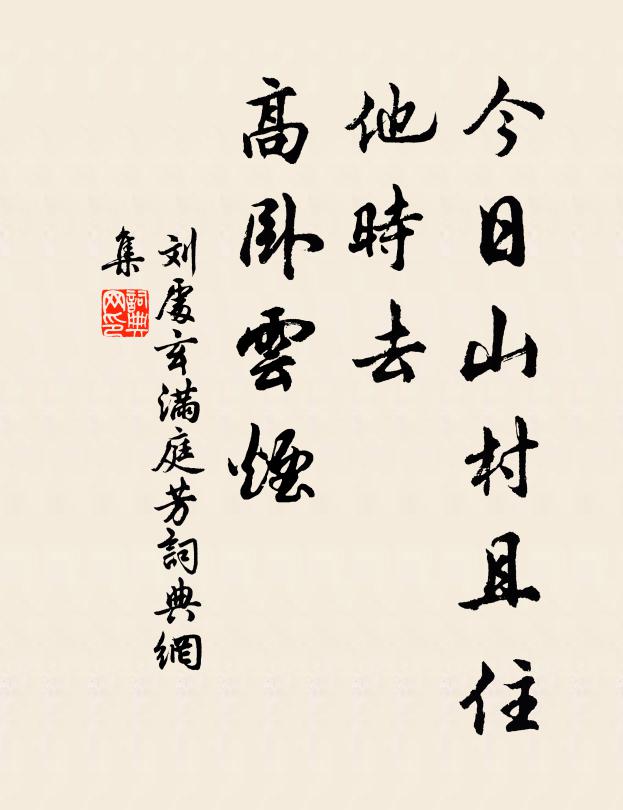 今日山村且住
他時去
高卧雲煙
刘處玄滿庭芳詞典網
集
詞典
网印